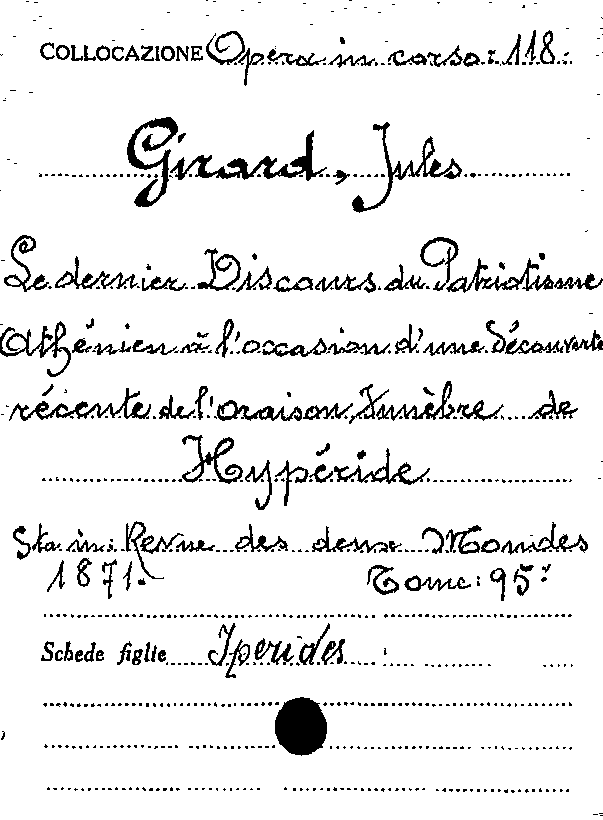 COLLOCAZIONE Opera in corso: 118.
Girard, Jules.
Le dernier Discours du Patriotisme
Athénien à l'occasion d'une Découverte
récente de l'oraison, Funèbre de
Hypéride
Sta in: Revue des deux Mondes
1871. Tome: 95°
Schede figlie Iperides